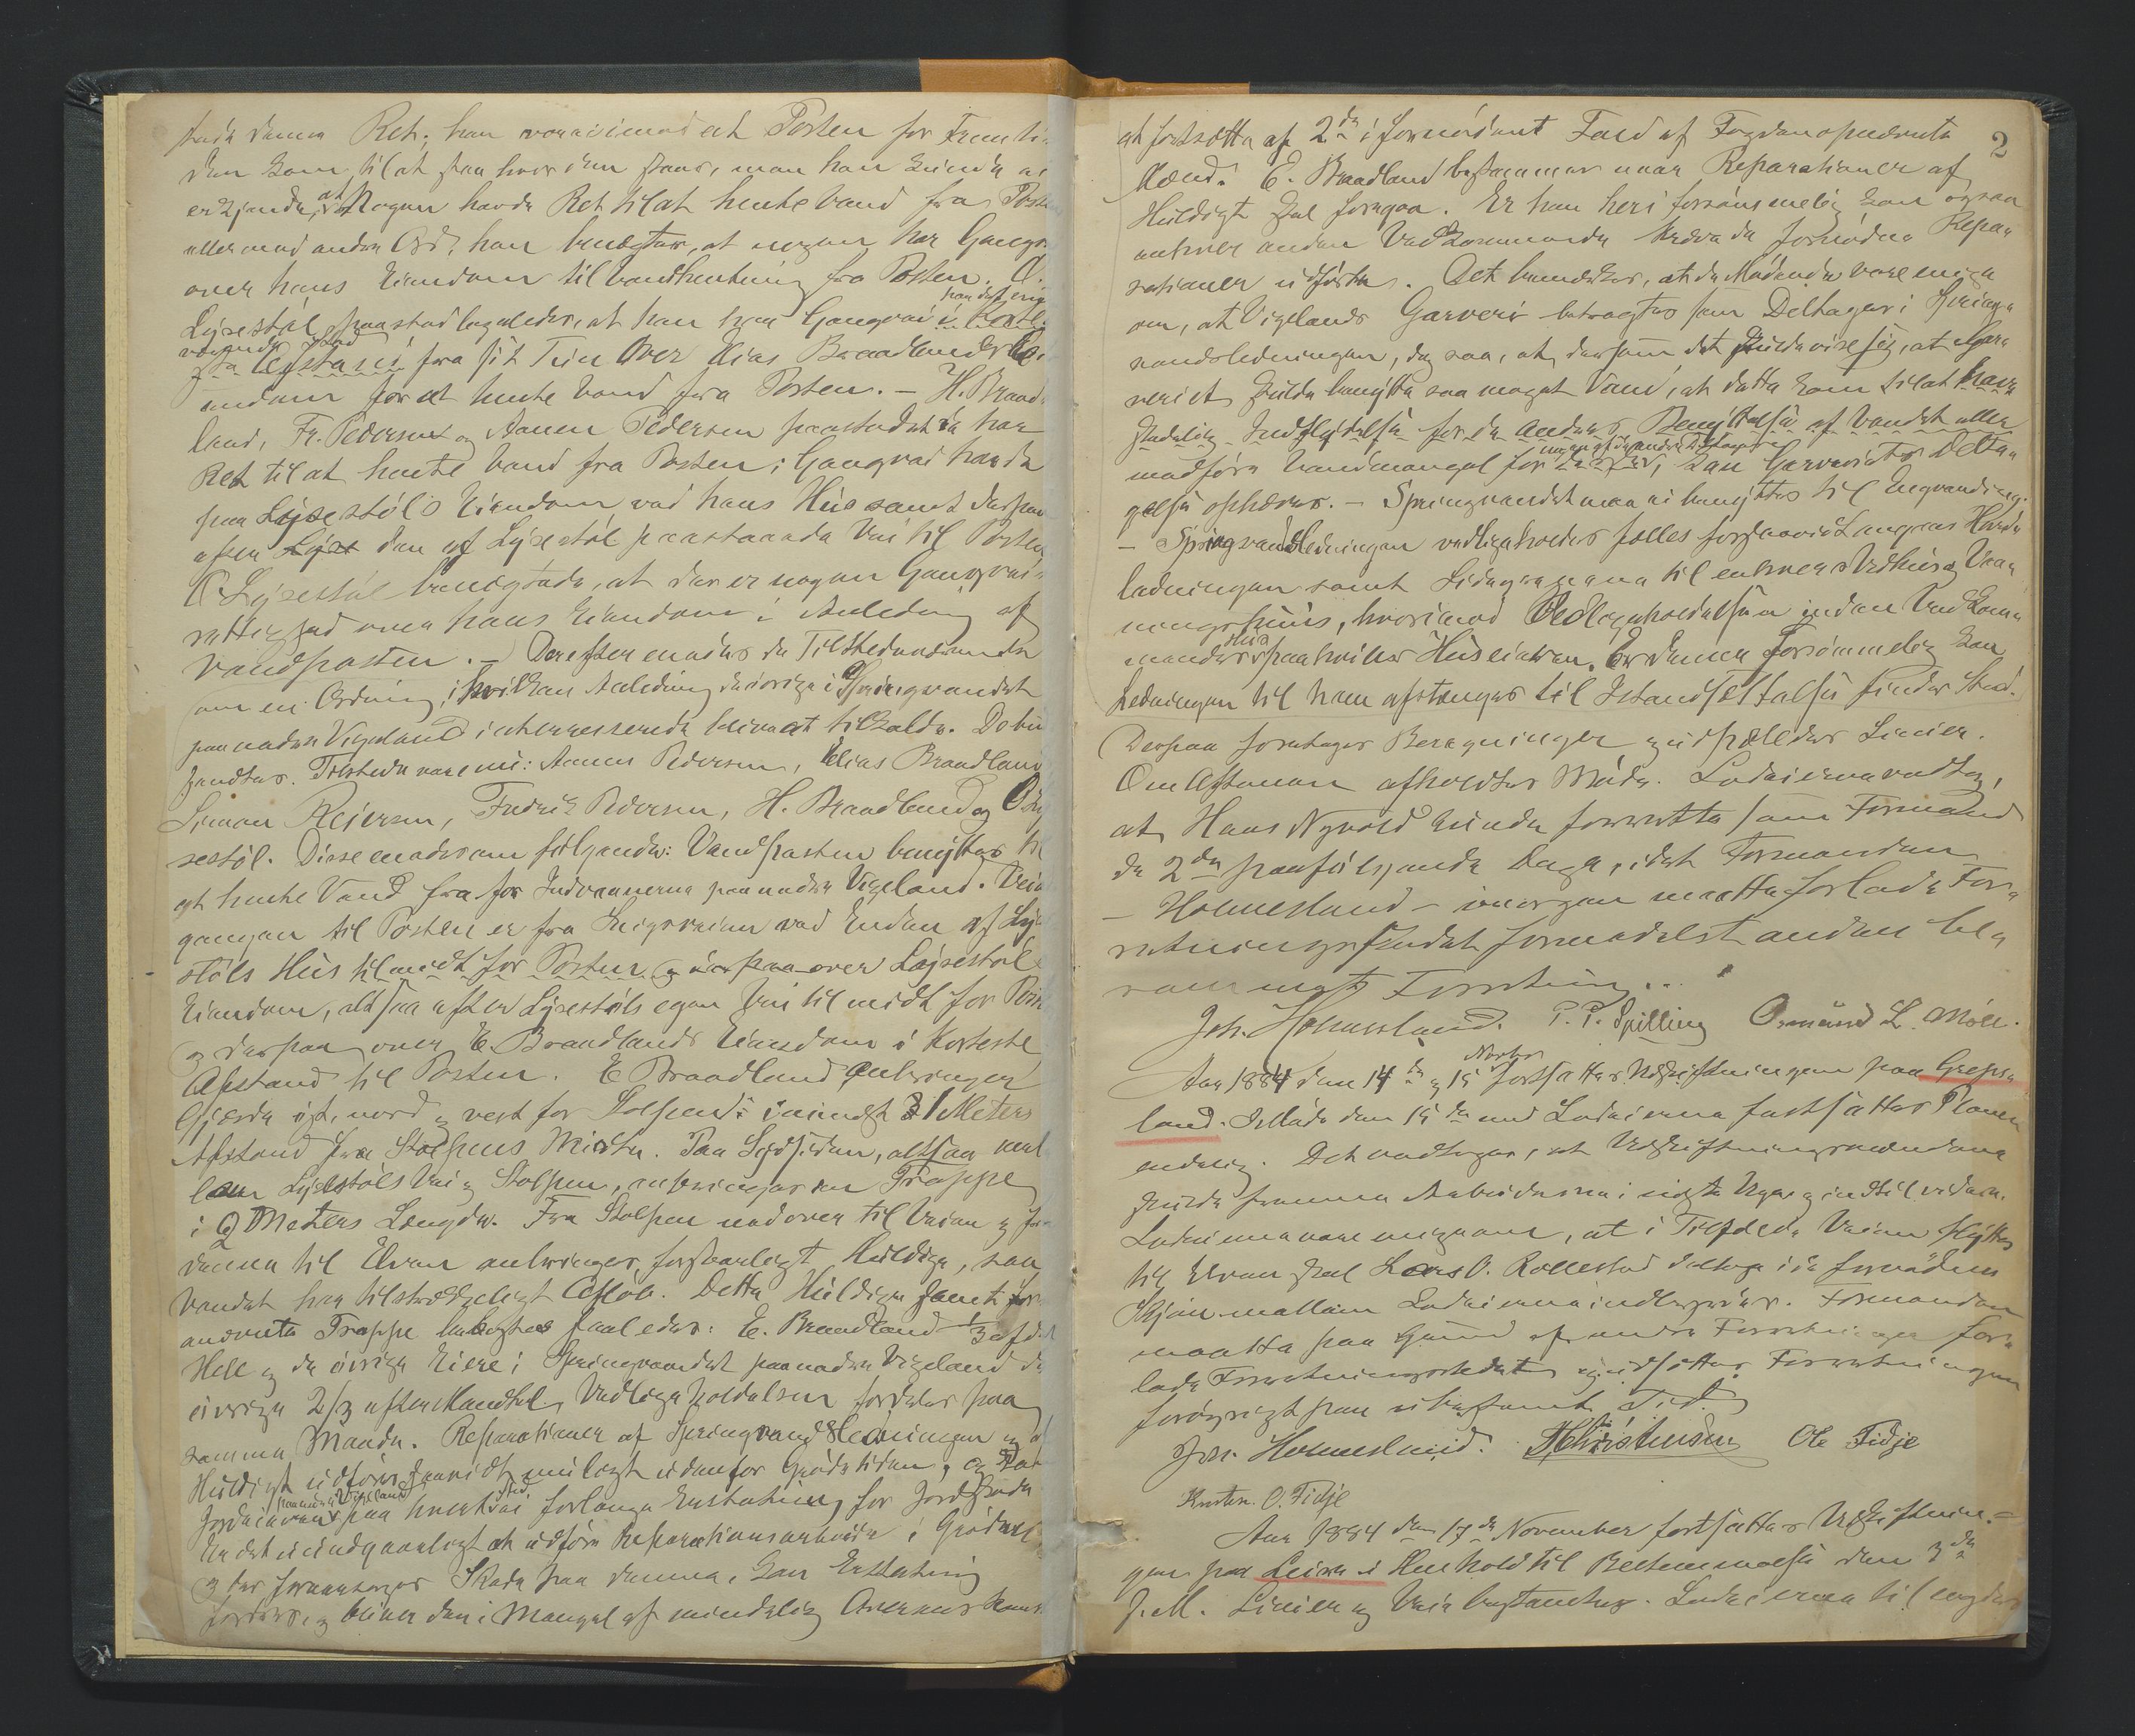 denne Ret; han var imod at Posten for Fremti-
den kom til at staa hvor den staar, men han kunde ei
erkjende, at Nogen havde Ret til at hente Vand fra Posten
eller med andre Ord: han benægter, at nogen har Gangvei
over hans Eiendom til Vandhentning fra Posten. O.
Lyestøl paastod ligeledes, at han har Gangvei i korte-
ste Afstand fra sit Tun over Elias Braadlands Ei-
endom for at hente Vand fra Posten. – H. Braad-
land, Fr. Pedersen og Aanen Pedersen paastod at de har
Ret til at hente Vand fra Posten; Gangvei har de
paa Lyestøls Eiendom ved hans Hus samt derpaa
efter den af Lyestøl paastaaede Vei til Posten
O Lyestøl benægtede, at der er nogen Gangvei-
rettighed over hans Eiendom i Anledning af
Vandposten. – Derefter enedes de Tilstedeværende
om en Ordning, i hvilken Anledning de øvrige i Springvandet
paa nedre Vigeland interesserede blev at tilkalde. De bi-
Tilstede vare nu: Aanen Pedersen, Elias Braadland
Simon Reiersen, Fredrik Pedersen, H. Braadland og O Ly-
sestøl. Disse enedes om følgende: Vandposten benyttes til
at hente Vand fra for Indvaanerne paa nedre Vigeland. Vei-
gangen til Posten er fra Krigsveien ved Enden af Lye-
støls Hus til midt for Posten og derpaa over Lyestøls
Eiendom, altsaa efter Lyestøls egen Vei til midt for Posten
og derpaa over E. Braadlands Eiendom i korteste
Afstand til Posten. E Braadland anbringer
Gjerde øst, nord og vest for Stolpen i mindst 1 Meters
Afstand fra Stolpens Midte. Paa Sydsiden, altsaa mel-
lem Lyestøls Vei og Stolpen, anbringes en Trappe
i 2 Meters Længde. Fra Stolpen nedover til Veien og fra
denne til Elven anbringes forsvarligt Huldige, saa
Vandet har tilstrækkeligt Afløb. Dette Huldige samt for-
anævnte Trappe bekostes saaledes: E. Braadland 1/3 af det
Hele og de øvrige Eiere i Springvandet paa nedre Vigeland de
øvrige 2/3 efter Mandtal. Vedligeholdelsen fordeles paa
samme Maade. Reparationer af Springvandsledningen og
Huldiget udføres saavidt muligt udenfor Grødetiden, og kan
Jordeieren paa hvert Sted forlange Erstatning for Jordskade
Er det uundgaaeligt at udføre Reparationsarbeide i Grødetid
og der foraarsages Skade paa denne, kan Erstatning
fordres, og bliver den i Mangel af mindelig Overenskomst
2
at fastsætte af 2de i fornødent Fald af Fogden opnævnte
Mænd. E. Braadland bestemmer naar Reparationer af
Huldiget skal foregaa. Er han heri forsømmelig kan ogsaa
enhver anden Vedkommende kræve de fornødne Repa-
rationer udførte. Det bemærkes, at de Mødende vare enige
om, at Vigelands Garveri betragtes som Deltager i Spring-
vandsledningen, dog saa, at dersom det skulde vise sig, at Gar-
veriet skulde benytte saa meget Vand, at dette kom til at have
skadelig Indflydelse for de andres Benyttelse af Vandet eller
medføre Vandmangel for nogen af de andre Deltagere, kan Garveriets Delta-
gelse ophæves. – Springvandet maa ei benyttes til Engvanding.
– Springvandsledningen vedligeholdes fælles forsaavidt angaar Hoved-
ledningen samt Sidegrenene til enhvers Vedkommende Vaa-
ningshuus, hvorimod Vedligeholdelsen inden Vedkom-
mendes Hus paahviler Huseieren. Er denne forsømmelig kan
Ledningen til ham afstænges til Istandsættelse finder Sted.
Derpaa foretoges Beregninger og udpæledes Linier.
Om Aftenen afholdtes Møde. Lodeierne vedtog,
at Hans Nyvold kunde forrette som Formand
de 2de paafølgende Dage, idet Formanden
– Holmesland – imorgen maatte forlade For-
retningsstedet formedelst anden be-
rammet Forretning. . .
Joh. Holmesland. P. P. Spilling Osmund L. Møll.
Aar 1884 den 14de og 15 Novbr fortsattes Udskiftningen paa Grepse-
land. I Møde den 15de med Lodeierne fastsattes Planen
endelig. Det vedtoges, at Udskiftningsmændene
skulde fremme Arbeiderne i sidste Uge og indtil videre.
Lodeierne vare enige om, at i Tilfælde Veien flyttes
til Elven skal Lars O. Rollestad deltage i de fornødne
Skjøn mellem Lodeierne indbyrdes. Formanden
maatte paa Grund af andre Forretninger for-
lade Forretningsstedet og udsattes Forretningen
forøvrigt paa ubestemt Tid.
Joh. Holmesland. Christensen Ole Fidje
Kristen O. Fidje
Aar 1884 den 17de November fortsattes Udskiftnin-
gen paa Leire i Henhold til Bestemmelse den 3die
d. M. Linier og Veie bestemtes. Lodeierne til